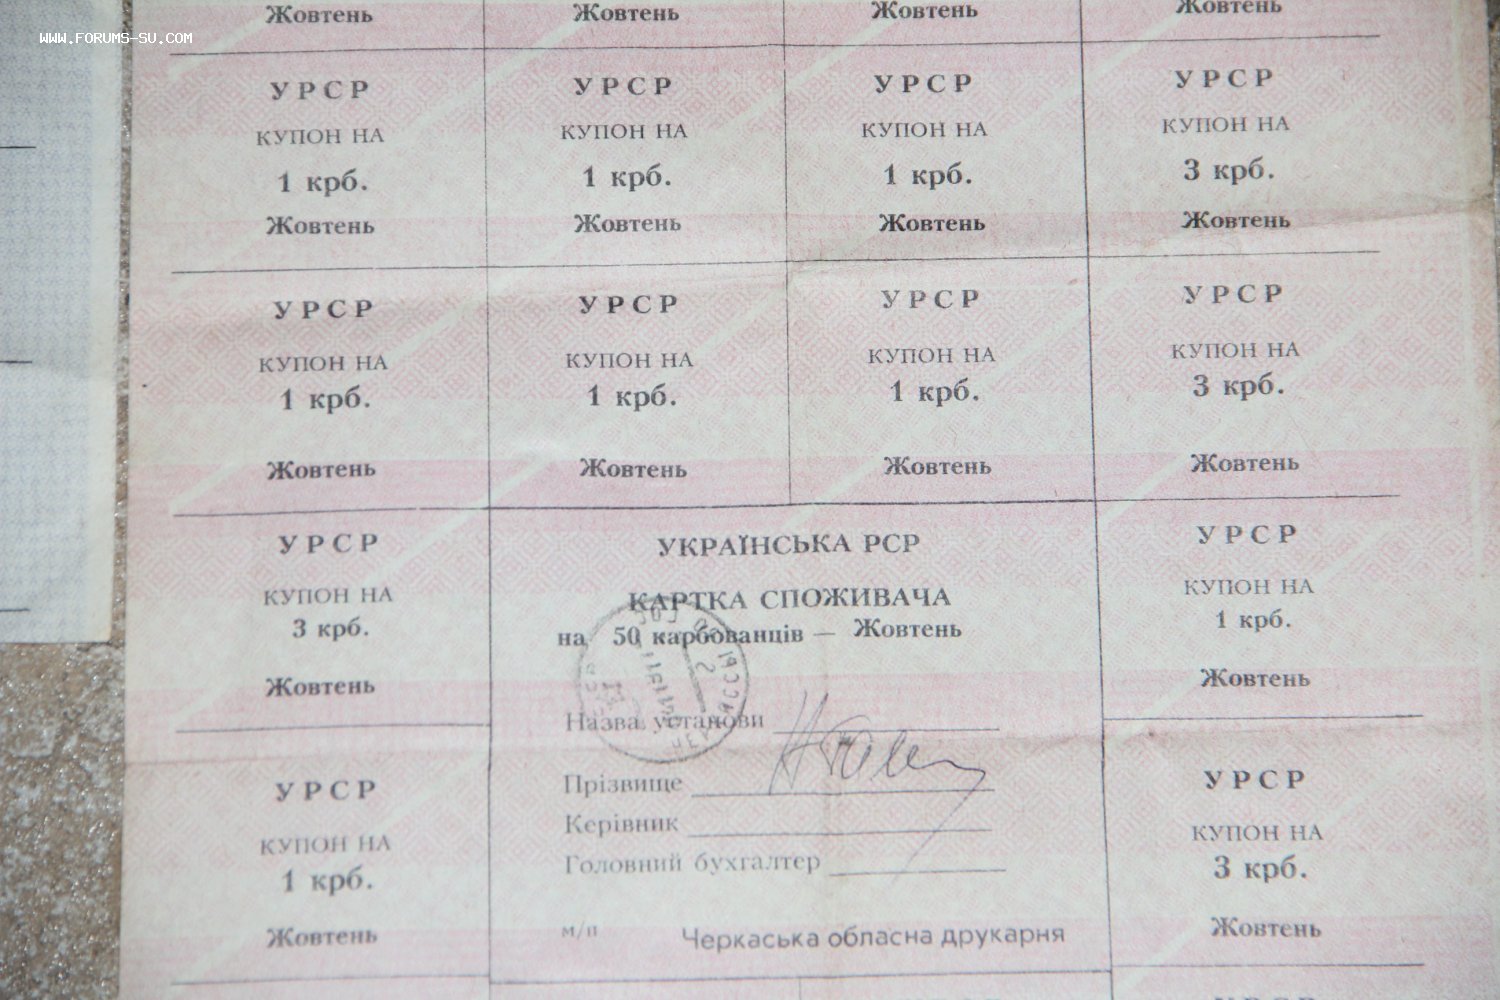 WWW.FORUMS-SU.COM
Жовтень Жовтень Жовтень Жовтень
УРСР УРСР УРСР УРСР
КУПОН НА КУПОН НА КУПОН НА КУПОН НА
1 крб. 1 крб. 1 крб. 3 крб.
Жовтень Жовтень Жовтень Жовтень
УРСР УРСР УРСР УРСР
КУПОН НА КУПОН НА КУПОН НА КУПОН НА
1 крб. 1 крб. 1 крб. 3 крб.
Жовтень Жовтень Жовтень Жовтень
УРСР
КУПОН НА
3 крб.
Жовтень
УКРАЇНСЬКА РСР
КАРТКА СПОЖИВАЧА
на 50 карбованців — Жовтень
Назва установи
Прізвище
Керівник
Головний бухгалтер
м/п Черкаська обласна друкарня
УРСР
КУПОН НА
1 крб.
Жовтень
УРСР
КУПОН НА
1 крб.
Жовтень
УРСР
КУПОН НА
3 крб.
Жовтень